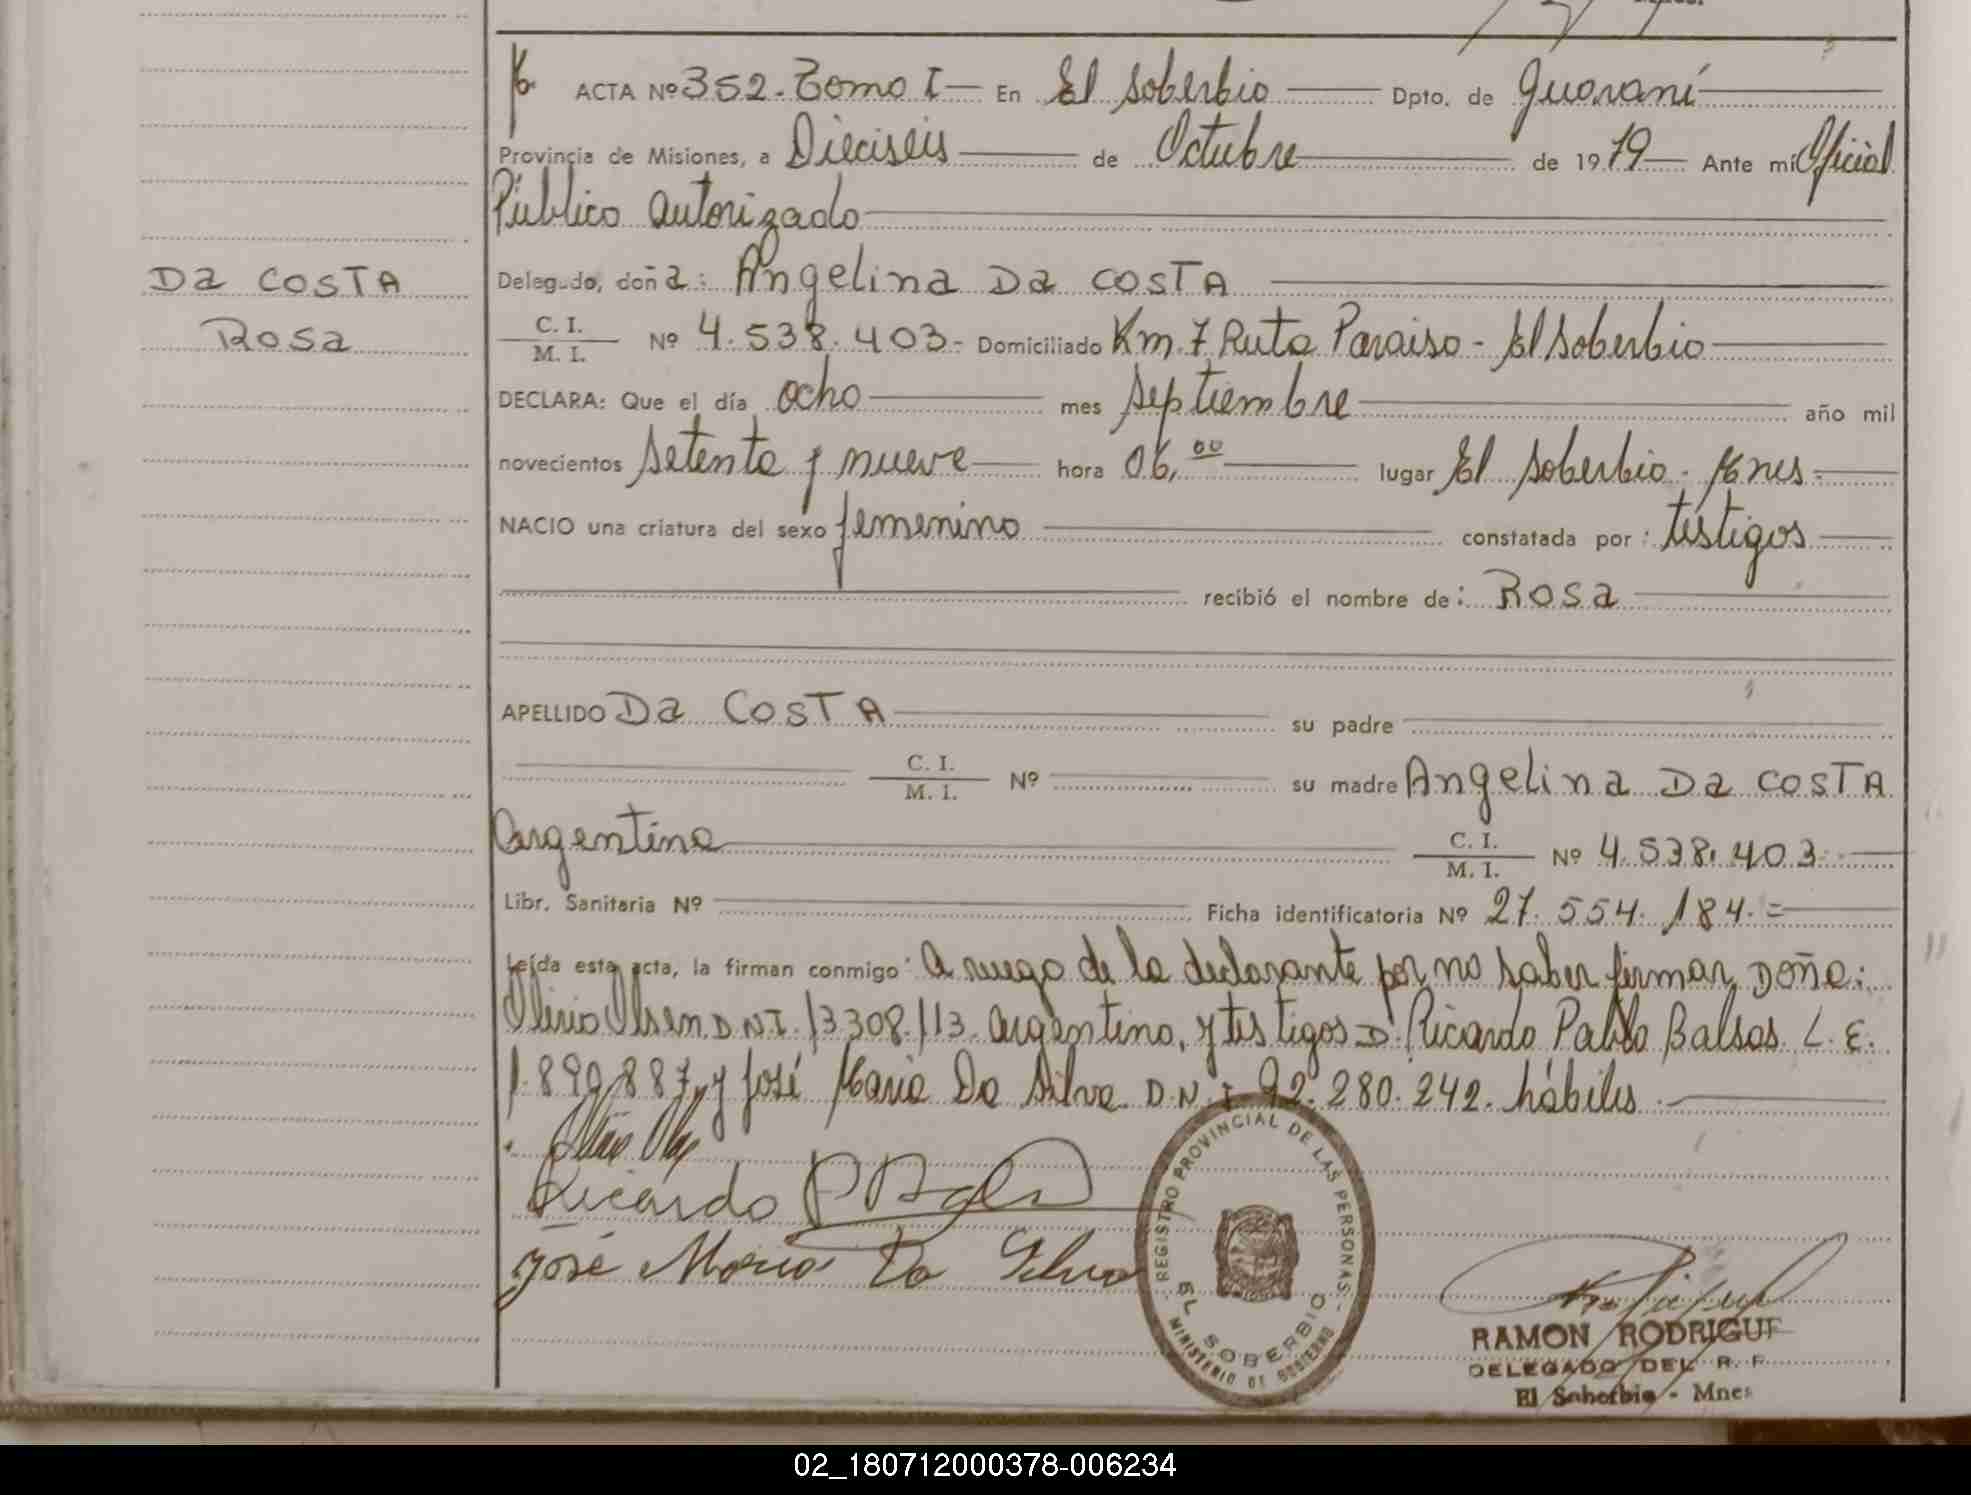 ACTA Nº 352. Tomo I — En El Soberbio — Dpto. de Guaraní
Provincia de Misiones, a Dieciseis — de Octubre — de 1979 — Ante mí Oficial
Público autorizado
DA COSTA
Rosa
Delegado, doña: Angelina Da COSTA
C. I.
M. I. Nº 4.538.403.- Domiciliado Km. 7 Ruta Paraiso - El Soberbio
DECLARA: Que el día ocho — mes septiembre — año mil
novecientos setenta y nueve — hora 06,00 — lugar El Soberbio - Mnes
NACIO una criatura del sexo femenino — constatada por: testigos
recibió el nombre de: Rosa
APELLIDO Da COSTA — su padre
C. I.
M. I. Nº su madre Angelina Da COSTA
argentina — C. I.
M. I. Nº 4.538.403
Libr. Sanitaria Nº — Ficha identificatoria Nº 27.554.184.=
Leída esta acta, la firman conmigo: A ruego de la declarante por no saber firmar, Doña:
Olsen D.N.I. 13.308.113. argentina, y testigos D. Ricardo Pablo Balsas. L. E.
1.899.887, y José Maria Da Silva. D.N.I. 92.280.242. hábiles.
Ricardo P
José Maria Da Silva
REGISTRO PROVINCIAL DE LAS PERSONAS
EL SOBERBIO
MINISTERIO DE GOBIERNO
RAMON RODRIGUE
DELEGADO DEL R. P.
El Soberbio - Mnes
02_180712000378-006234